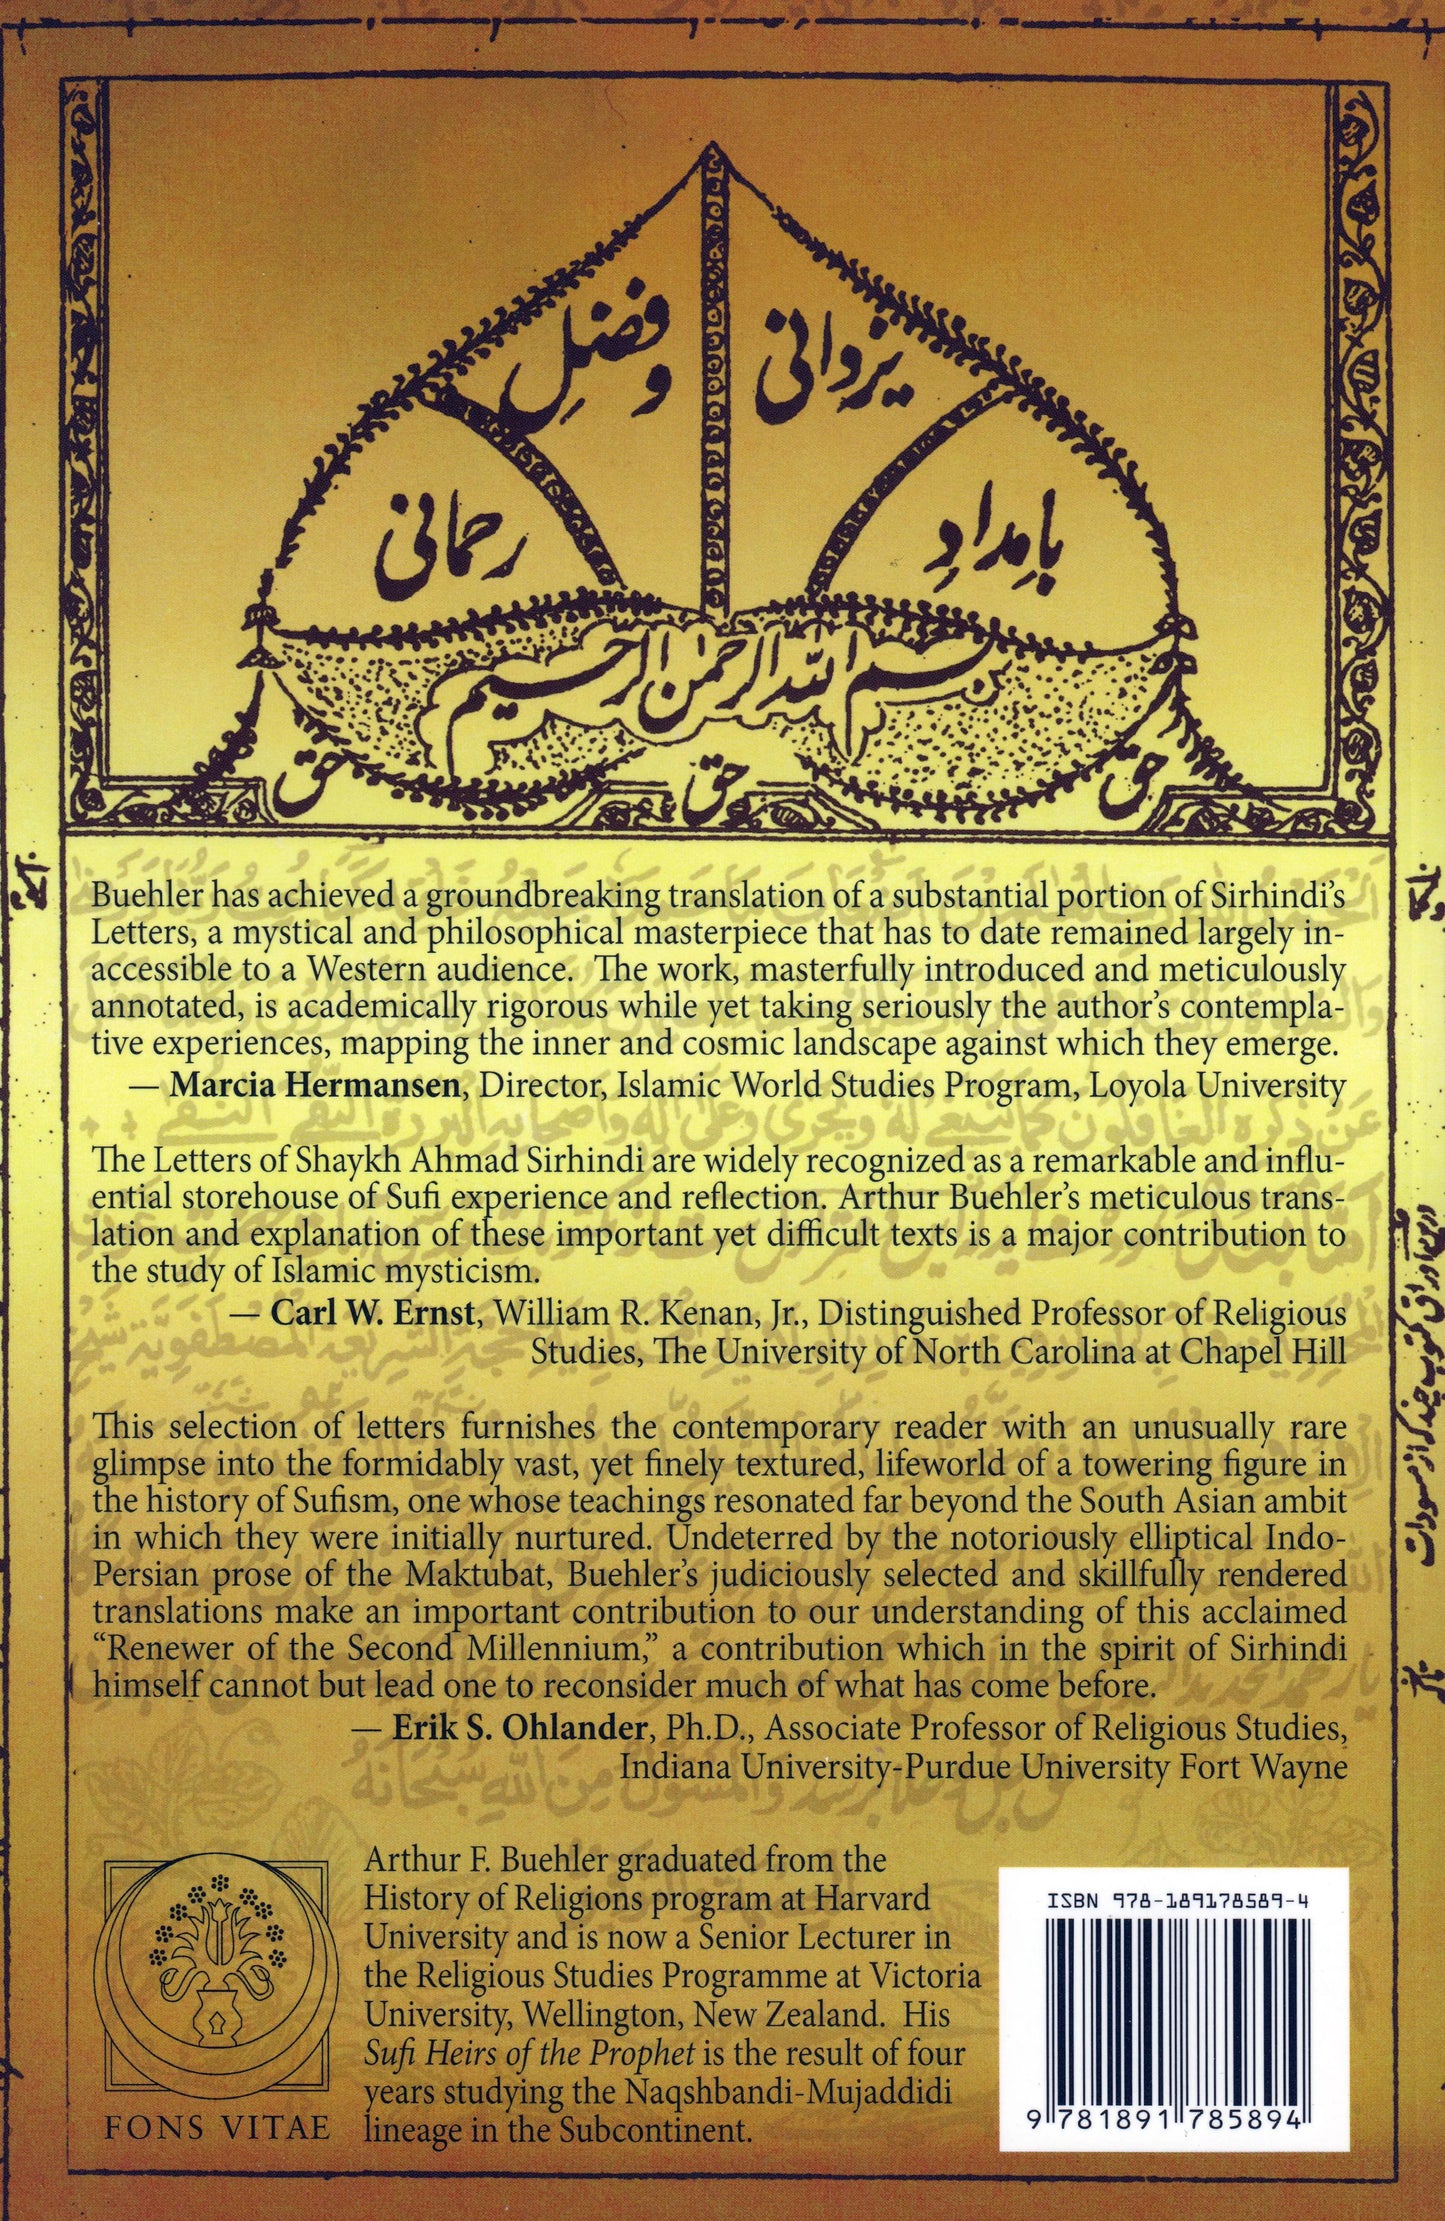 و فضلِ
یزدانی
رحمانی
بامدادِ
بسم الله الرحمن الرحیم
حق
حق
حق
Buehler has achieved a groundbreaking translation of a substantial portion of Sirhindi's
Letters, a mystical and philosophical masterpiece that has to date remained largely in-
accessible to a Western audience. The work, masterfully introduced and meticulously
annotated, is academically rigorous while yet taking seriously the author's contempla-
tive experiences, mapping the inner and cosmic landscape against which they emerge.
— Marcia Hermansen, Director, Islamic World Studies Program, Loyola University
The Letters of Shaykh Ahmad Sirhindi are widely recognized as a remarkable and influ-
ential storehouse of Sufi experience and reflection. Arthur Buehler's meticulous trans-
lation and explanation of these important yet difficult texts is a major contribution to
the study of Islamic mysticism.
— Carl W. Ernst, William R. Kenan, Jr., Distinguished Professor of Religious
Studies, The University of North Carolina at Chapel Hill
This selection of letters furnishes the contemporary reader with an unusually rare
glimpse into the formidably vast, yet finely textured, lifeworld of a towering figure in
the history of Sufism, one whose teachings resonated far beyond the South Asian ambit
in which they were initially nurtured. Undeterred by the notoriously elliptical Indo-
Persian prose of the Maktubat, Buehler's judiciously selected and skillfully rendered
translations make an important contribution to our understanding of this acclaimed
“Renewer of the Second Millennium,” a contribution which in the spirit of Sirhindi
himself cannot but lead one to reconsider much of what has come before.
— Erik S. Ohlander, Ph.D., Associate Professor of Religious Studies,
Indiana University-Purdue University Fort Wayne
Arthur F. Buehler graduated from the
History of Religions program at Harvard
University and is now a Senior Lecturer in
the Religious Studies Programme at Victoria
University, Wellington, New Zealand. His
Sufi Heirs of the Prophet is the result of four
years studying the Naqshbandi-Mujaddidi
lineage in the Subcontinent.
FONS VITAE
ISBN 978-189178589-4
9 781891 785894